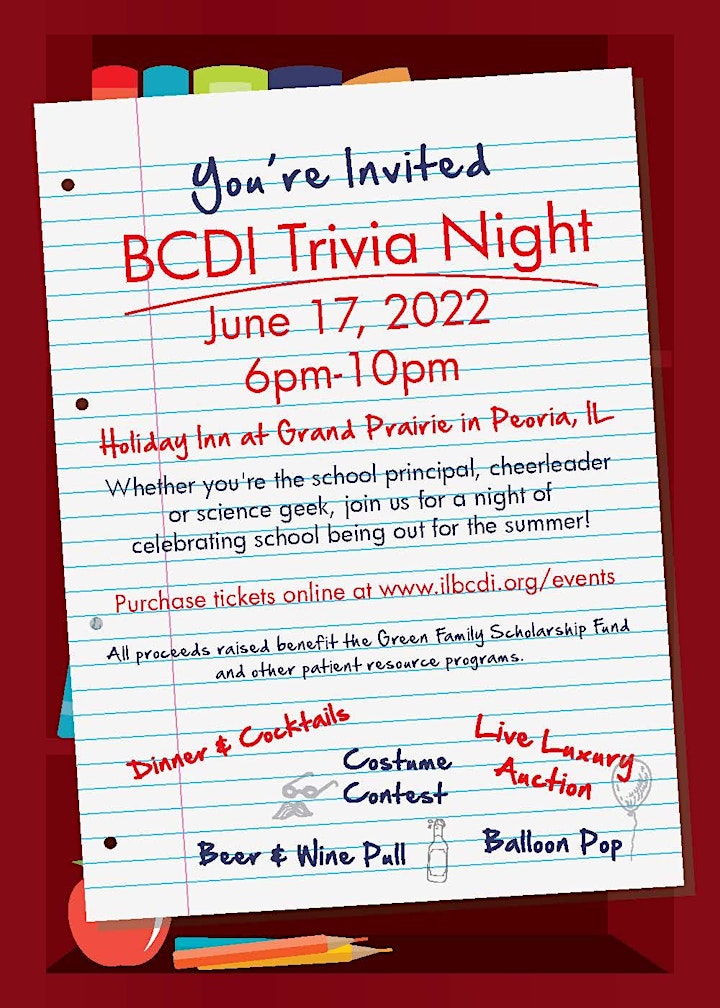 You're Invited
BCDI Trivia Night
June 17, 2022
6pm-10pm
Holiday Inn at Grand Prairie in Peoria, IL
Whether you're the school principal, cheerleader
or science geek, join us for a night of
celebrating school being out for the summer!
Purchase tickets online at www.ilbcdi.org/events
All proceeds raised benefit the Green Family Scholarship Fund
and other patient resource programs.
Dinner & Cocktails
Live Luxury
Auction
Costume
Contest
Beer & Wine Pull
Balloon Pop